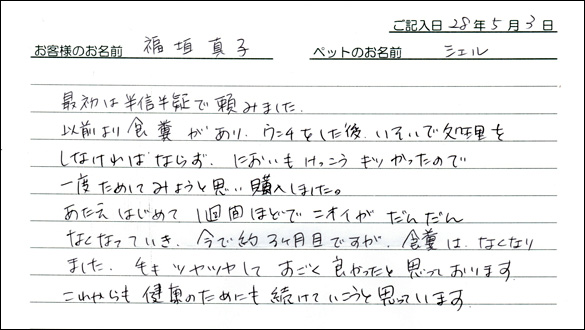 ご記入日 28年5月3日
お客様のお名前 福垣 真子 ペットのお名前 シェル
最初は半信半疑で頼みました.
以前より食糞があり、ウンチをした後、いそいで処理を
しなければならず、においもけっこうキツかったので
一度ためしてみようと思い購入しました。
あたえはじめて1週間ほどでニオイがだんだん
なくなっていき、今で約3ヶ月目ですが、食糞は、なくなり
ました. 毛もツヤツヤして すごく良かったと思っております
これからも健康のためにも続けていこうと思っています.